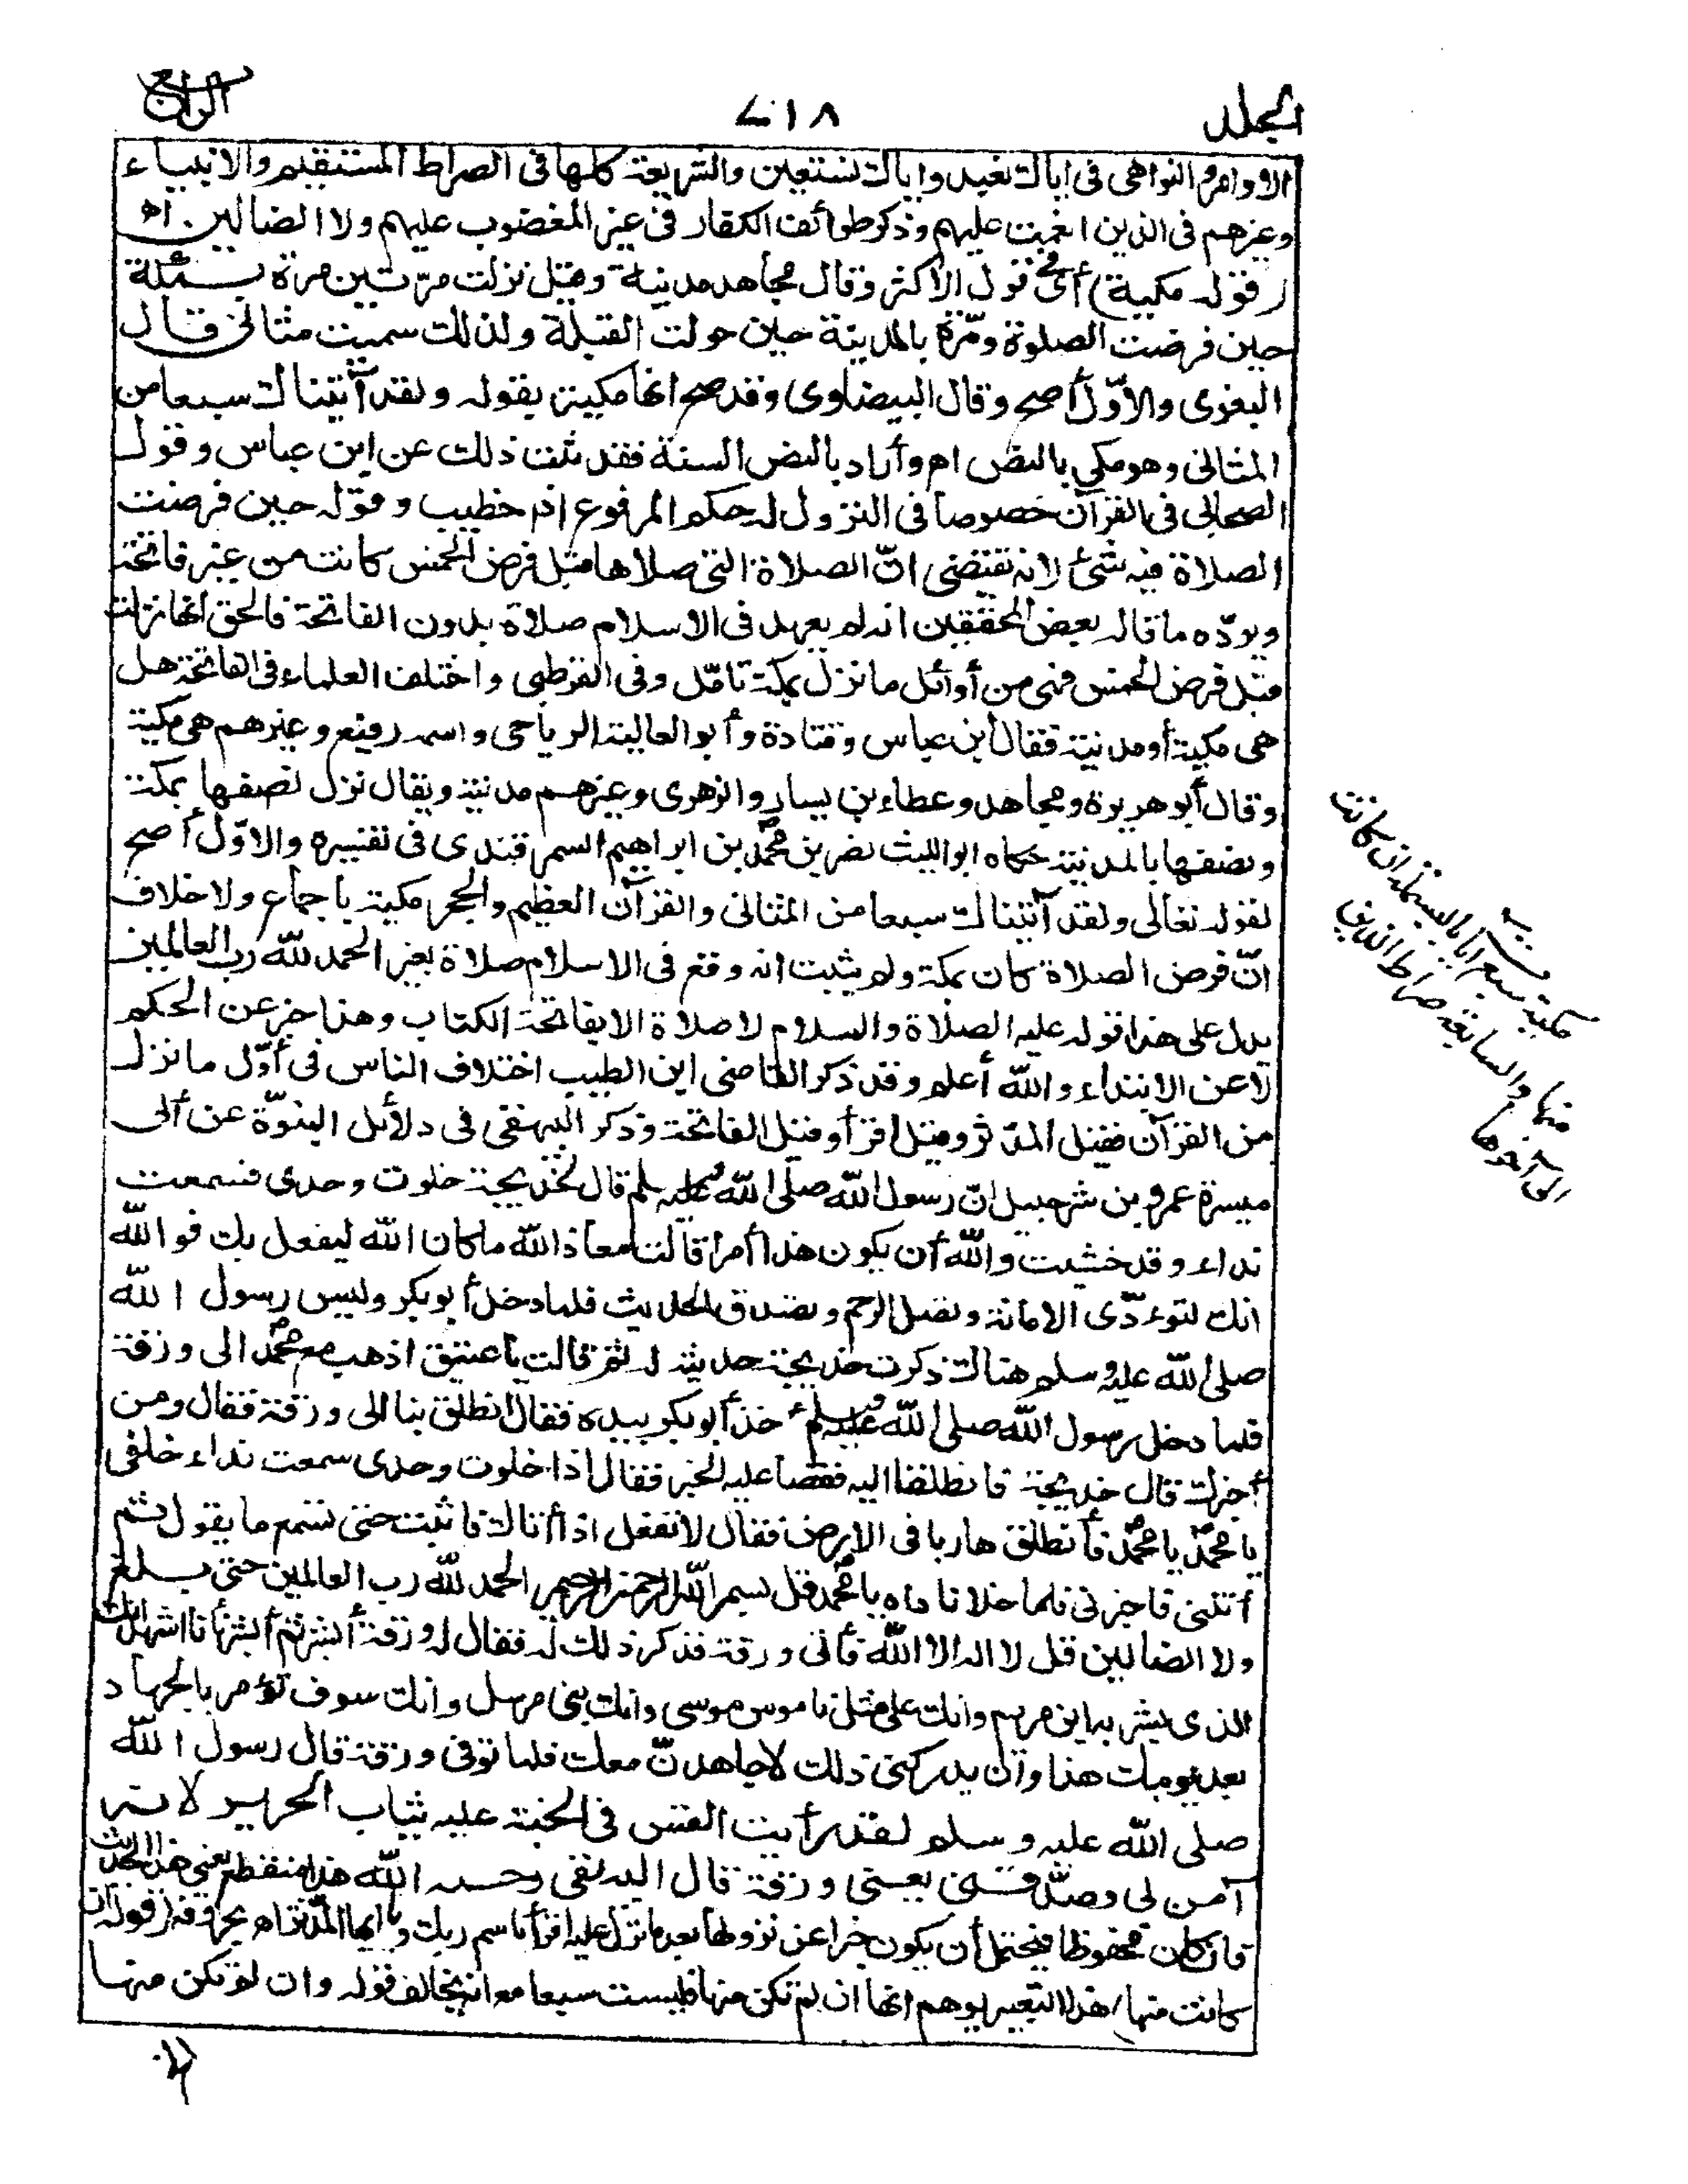 المجلد
٦١٨
الرابع
الاوامر والنواهى فى اياك نعبد واياك نستعين والشريعة كلها فى الصراط المستقيم والانبياء
وغيرهم فى الذين انعمت عليهم وذكر طوائف الكفار فى غير المغضوب عليهم ولا الضالين. اه
(قوله مكية) أى فى قول الأكثر وقال مجاهد مدنية وقيل نزلت مرتين مرة بمكة
حين فرضت الصلوة ومرّة بالمدينة حين حولت القبلة ولذلك سميت مثانى قال
البغوى والأوّل أصح وقال البيضاوى وقد صح انها مكية بقوله ولقد آتيناك سبعا من
المثانى وهو مكي بالنص اه وأراد بالنص السنة فقد ثبت ذلك عن ابن عباس وقول
الصحابى فى القرآن خصوصا فى النزول له حكم المرفوع اه خطيب وقوله حين فرضت
الصلاة فيه شئ لانه يقتضى انّ الصلاة التى صلاها قبل فرض الخمس كانت من غير فاتحة
ويردّه ما قاله بعض المحققين انه لم يعهد فى الاسلام صلاة بدون الفاتحة فالحق انها نزلت
قبل فرض الخمس فهى من أوائل ما نزل بمكة تامّل وفى القرطبى واختلف العلماء فى الفاتحة هل
هى مكية أو مدنية فقال ابن عباس وقتادة وأبو العالية الرياحى واسمه رفيع وغيرهم هى مكية
وقال أبو هريرة ومجاهد وعطاء بن يسار والزهرى وغيرهم مدنية ويقال نزل نصفها بمكة
ونصفها بالمدينة حكاه ابو الليث نصر بن محمد بن ابراهيم السمرقندى فى تفسيره والاوّل أصح
لقوله تعالى ولقد آتيناك سبعا من المثانى والقرآن العظيم والحجر مكية باجماع ولا خلاف
انّ فرض الصلاة كان بمكة ولم يثبت انه وقع فى الاسلام صلاة بغير الحمد للّه رب العالمين
يدل على هذا قوله عليه الصلاة والسلام لا صلاة الا بفاتحة الكتاب وهذا خبر عن الحكم
لا عن الابتداء واللّه أعلم وقد ذكر القاضى ابن الطيب اختلاف الناس فى أوّل ما نزل
من القرآن فقيل المدّثر وقيل اقرأ وقيل الفاتحة وذكر البيهقى فى دلائل النبوّة عن أبى
ميسرة عمرو بن شرحبيل انّ رسول اللّه صلى اللّه عليه وسلم قال لخديجة خلوت وحدى فسمعت
نداء وقد خشيت واللّه أن يكون هذا أمرا قالت معاذ اللّه ما كان اللّه ليفعل بك فو اللّه
انك لتوءدّى الامانة وتصل الرحم وتصدق الحديث فلما دخل أبو بكر وليس رسول اللّه
صلى اللّه عليه وسلم هناك ذكرت خديجة حديثه له ثم قالت يا عتيق اذهب مع محمد الى ورقة
فلما دخل رسول اللّه صلى اللّه عليه وسلم أخذ أبو بكر بيده فقال انطلق بنا الى ورقة فقال ومن
أخبرك قال خديجة فانطلقا اليه فقصا عليه الخبر فقال اذا خلوت وحدى سمعت نداء خلفى
يا محمد يا محمد فأنطلق هاربا فى الارض فقال لا تفعل اذا أتاك فاثبت حتى تسمع ما يقول ثم
أتتنى فاخبرنى فلما خلا ناداه يا محمد قل بسم اللّه الرحمن الرحيم الحمد للّه رب العالمين حتى بلغ
ولا الضالين قل لا اله الا اللّه فأتى ورقة فذكر ذلك له فقال له ورقة أبشر ثم أبشر فأنا اشهد انك
الذى بشر به ابن مريم وانك على مثل ناموس موسى وانك نبى مرسل وانك سوف تؤمر بالجهاد
بعد يومك هذا وان يدركنى ذلك لاجاهدنّ معك فلما توفى ورقة قال رسول اللّه
صلى اللّه عليه وسلم لقد رأيت القس فى الجنة عليه ثياب الحرير لانه
آمن بى وصدّقنى يعنى ورقة قال البيهقى رحمه اللّه هذا منقطع يعنى هذا الحديث
فان كان محفوظا فيحتمل أن يكون خبرا عن نزولها بعد ما نزل عليه اقرأ باسم ربك ويا ايها المدّثر اه بحروفه (قوله ان
كانت منها) هذا التعبير يوهم انها ان لم تكن منها فليست سبعا مع انه يخالف قوله وان لم تكن منها
مكية سبع آيات بالبسملة ان كانت
منها والسابعة صراط الذين
الى آخرها